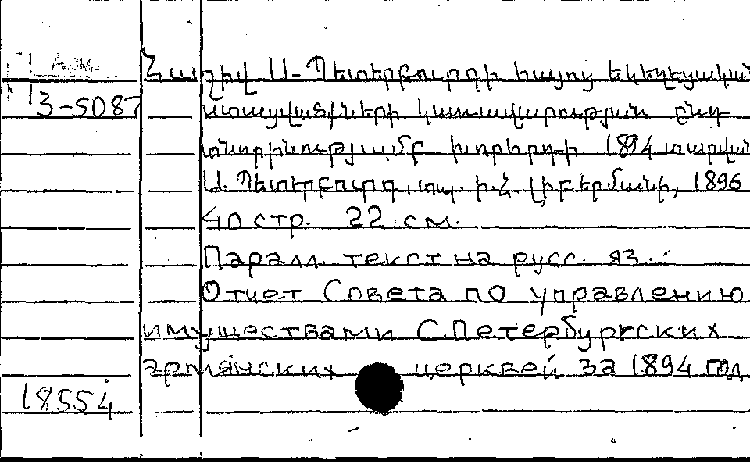 Арм.
3-5087
Հաշիվ Ս-Պետերբուրգի հայոց եկեղեցական
ստացվածների կառավարության ընդ
տնօրինությամբ խորհրդի 1894 տարվա
Ս. Պետերբուրգ, տպ. Ի.Հ. Լիբերմանի, 1896
40 стр. 22 см.
Паралл. текст на русс. яз.
Отчет Совета по управлению
имуществами С.Петербургских
армянских церквей за 1894 год
18554